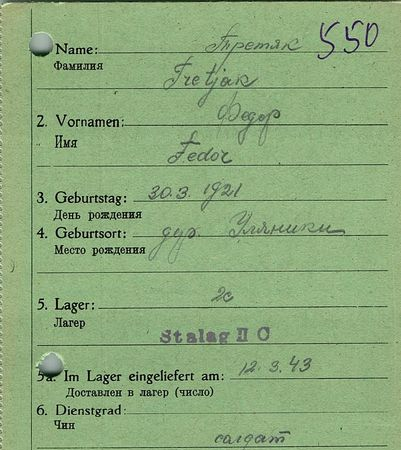 Name: Третяк 550
Фамилия
Tretjak
2. Vornamen: Федор
Имя
Fedor
3. Geburtstag: 30.3.1921
День рождения
4. Geburtsort: дур. Уляники
Место рождения
5. Lager: 2c
Лагер
Stalag II C
5a. Im Lager eingeliefert am: 12.3.43
Доставлен в лагер (число)
6. Dienstgrad:
Чин
солдат